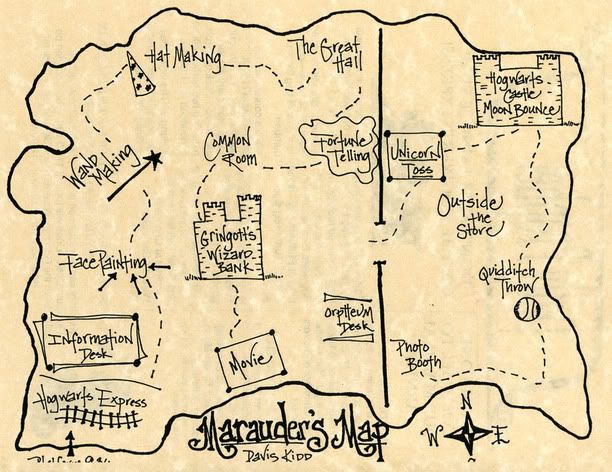 Hat Making
The Great
Hall
Hogwarts
Castle
Moon Bounce
Wand
Making
Common
Room
Fortune
Telling
Unicorn
Toss
Outside
the
Store
Gringott's
Wizard
Bank
Face Painting
Quidditch
Throw
Information
Desk
Orpheum
Desk
Movie
Photo
Booth
Hogwarts Express
Marauder's Map
Davis Kidd
N
W
E
S
Platform 9 3/4